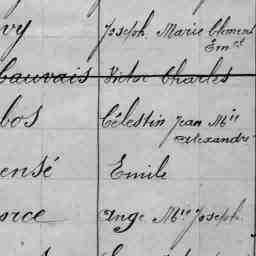 vy Joseph Marie Clément
Em.el
Cauvais Victor Charles
bos Célestin Jean M.ie
Alexandre
ensé Emile
orce Ange M.ie Joseph